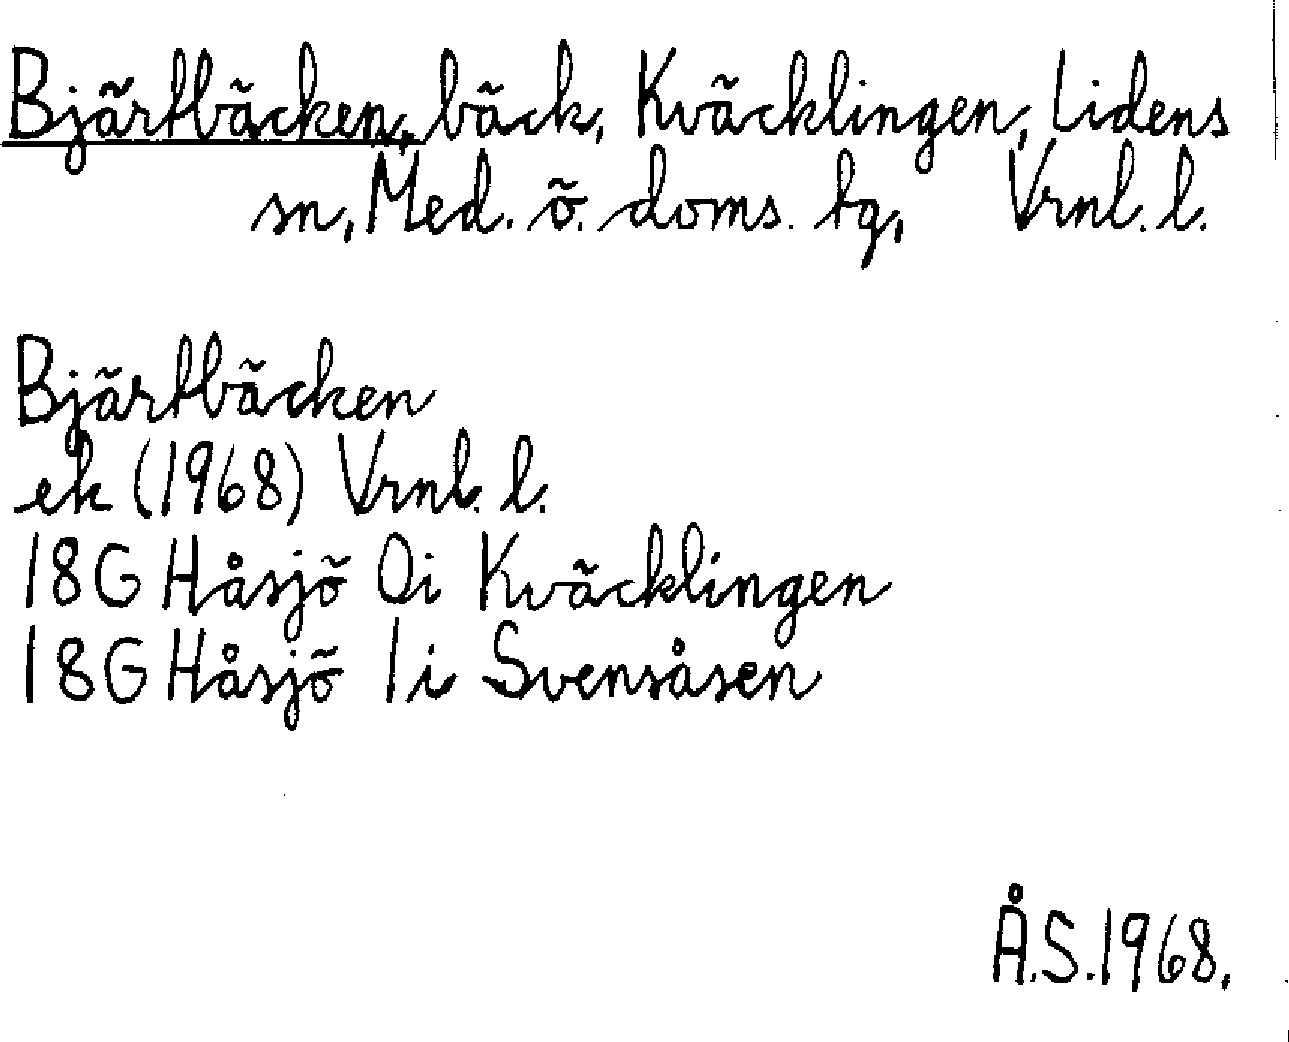 Bjärtbäcken, bäck, Kväcklingen, Lidens
sn, Med. ö. doms. tg, Vrnl. l.
Bjärtbäcken
ek (1968) Vrnl. l.
18G Håsjö 0i Kväcklingen
18G Håsjö 1i Svensåsen
Å.S.1968.